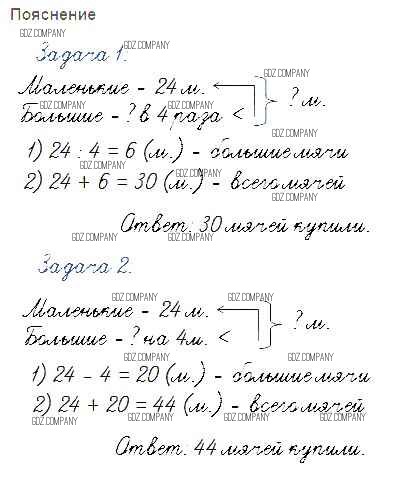 Пояснение
GDZ.COMPANY
Задача 1.
GDZ.COMPANY
Маленькие - 24 м.
GDZ.COMPANY
? м.
Большие - ? в 4 раза <
GDZ.COMPANY
GDZ.COMPANY
GDZ.COMPANY
1) 24 : 4 = 6 (м.) - большие мячи
GDZ.COMPANY
GDZ.COMPANY
2) 24 + 6 = 30 (м.) - всего мячей
GDZ.COMPANY
Ответ: 30 мячей купили.
GDZ.COMPANY
GDZ.COMPANY
Задача 2.
GDZ.COMPANY
GDZ.COMPANY
Маленькие - 24 м.
? м.
Большие - ? на 4 м. <
GDZ.COMPANY
GDZ.COMPANY
1) 24 - 4 = 20 (м.) - большие мячи
2) 24 + 20 = 44 (м.) - всего мячей
GDZ.COMPANY
GDZ.COMPANY
GDZ.COMPANY
GDZ.COMPANY
Ответ: 44 мячей купили.